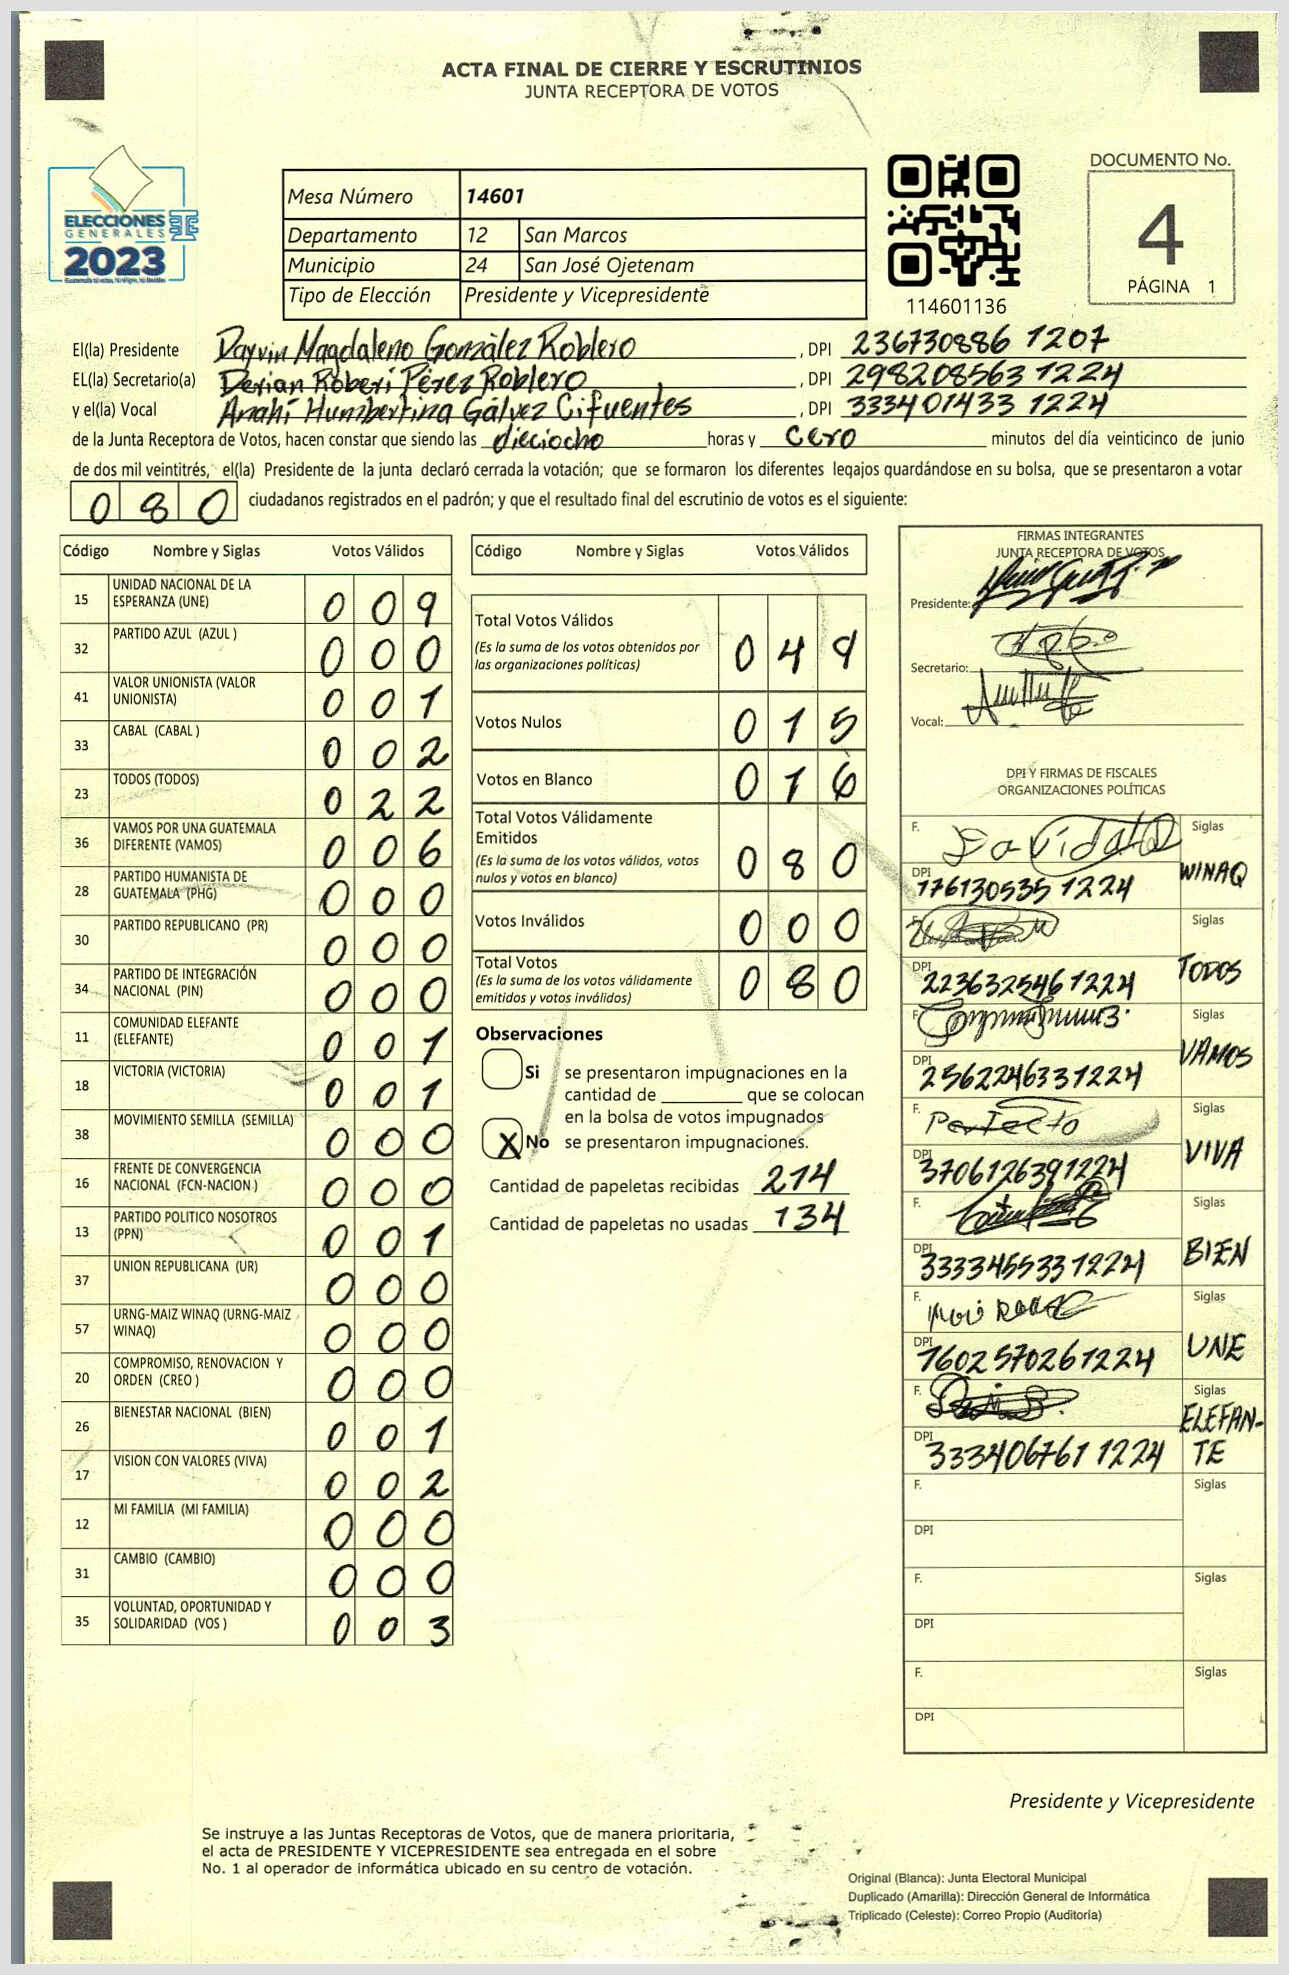 ACTA FINAL DE CIERRE Y ESCRUTINIOS
JUNTA RECEPTORA DE VOTOS
ELECCIONES
GENERALES
2023
Mesa Número 14601
Departamento 12 San Marcos
Municipio 24 San José Ojetenam
Tipo de Elección Presidente y Vicepresidente
114601136
DOCUMENTO No.
4
PÁGINA 1
El(la) Presidente Dayvin Magdaleno González Roblero, DPI 236730886 1207
EL(la) Secretario(a) Derian Roberi Pérez Roblero, DPI 298208563 1224
y el(la) Vocal Anahí Humbertina Gálvez Cifuentes, DPI 333401433 1224
de la Junta Receptora de Votos, hacen constar que siendo las dieciocho horas y cero minutos del día veinticinco de junio
de dos mil veintitrés, el(la) Presidente de la junta declaró cerrada la votación; que se formaron los diferentes legajos quardándose en su bolsa, que se presentaron a votar
080 ciudadanos registrados en el padrón; y que el resultado final del escrutinio de votos es el siguiente:
Código Nombre y Siglas Votos Válidos
15 UNIDAD NACIONAL DE LA
ESPERANZA (UNE) 009
32 PARTIDO AZUL (AZUL ) 000
41 VALOR UNIONISTA (VALOR
UNIONISTA) 001
33 CABAL (CABAL ) 002
23 TODOS (TODOS) 022
36 VAMOS POR UNA GUATEMALA
DIFERENTE (VAMOS) 006
28 PARTIDO HUMANISTA DE
GUATEMALA (PHG) 000
30 PARTIDO REPUBLICANO (PR) 000
34 PARTIDO DE INTEGRACIÓN
NACIONAL (PIN) 000
11 COMUNIDAD ELEFANTE
(ELEFANTE) 001
18 VICTORIA (VICTORIA) 001
38 MOVIMIENTO SEMILLA (SEMILLA) 000
16 FRENTE DE CONVERGENCIA
NACIONAL (FCN-NACION ) 000
13 PARTIDO POLITICO NOSOTROS
(PPN) 001
37 UNION REPUBLICANA (UR) 000
57 URNG-MAIZ WINAQ (URNG-MAIZ
WINAQ) 000
20 COMPROMISO, RENOVACION Y
ORDEN (CREO ) 000
26 BIENESTAR NACIONAL (BIEN) 001
17 VISION CON VALORES (VIVA) 002
12 MI FAMILIA (MI FAMILIA) 000
31 CAMBIO (CAMBIO) 000
35 VOLUNTAD, OPORTUNIDAD Y
SOLIDARIDAD (VOS ) 003
Código Nombre y Siglas Votos Válidos
Total Votos Válidos 049
(Es la suma de los votos obtenidos por
las organizaciones políticas)
Votos Nulos 015
Votos en Blanco 016
Total Votos Válidamente
Emitidos 080
(Es la suma de los votos válidos, votos
nulos y votos en blanco)
Votos Inválidos 000
Total Votos 080
(Es la suma de los votos válidamente
emitidos y votos inválidos)
Observaciones
Si se presentaron impugnaciones en la
cantidad de ________ que se colocan
en la bolsa de votos impugnados
X No se presentaron impugnaciones.
Cantidad de papeletas recibidas 214
Cantidad de papeletas no usadas 134
FIRMAS INTEGRANTES
JUNTA RECEPTORA DE VOTOS
Presidente:
Secretario:
Vocal:
DPI Y FIRMAS DE FISCALES
ORGANIZACIONES POLÍTICAS
F. Siglas
DPI 176130535 1224 WINAQ
F. Siglas
DPI 223632546 1224 TODOS
F. Siglas
DPI 256224633 1224 VAMOS
F. Perfecto Siglas
DPI 370612639 1224 VIVA
F. Siglas
DPI 333345533 1224 BIEN
F. Siglas
DPI 160257026 1224 UNE
F. Siglas
DPI 333406761 1224 ELEFAN-
TE
F. Siglas
DPI
F. Siglas
DPI
F. Siglas
DPI
Presidente y Vicepresidente
Se instruye a las Juntas Receptoras de Votos, que de manera prioritaria,
el acta de PRESIDENTE Y VICEPRESIDENTE sea entregada en el sobre
No. 1 al operador de informática ubicado en su centro de votación.
Original (Blanca): Junta Electoral Municipal
Duplicado (Amarilla): Dirección General de Informática
Triplicado (Celeste): Correo Propio (Auditoría)